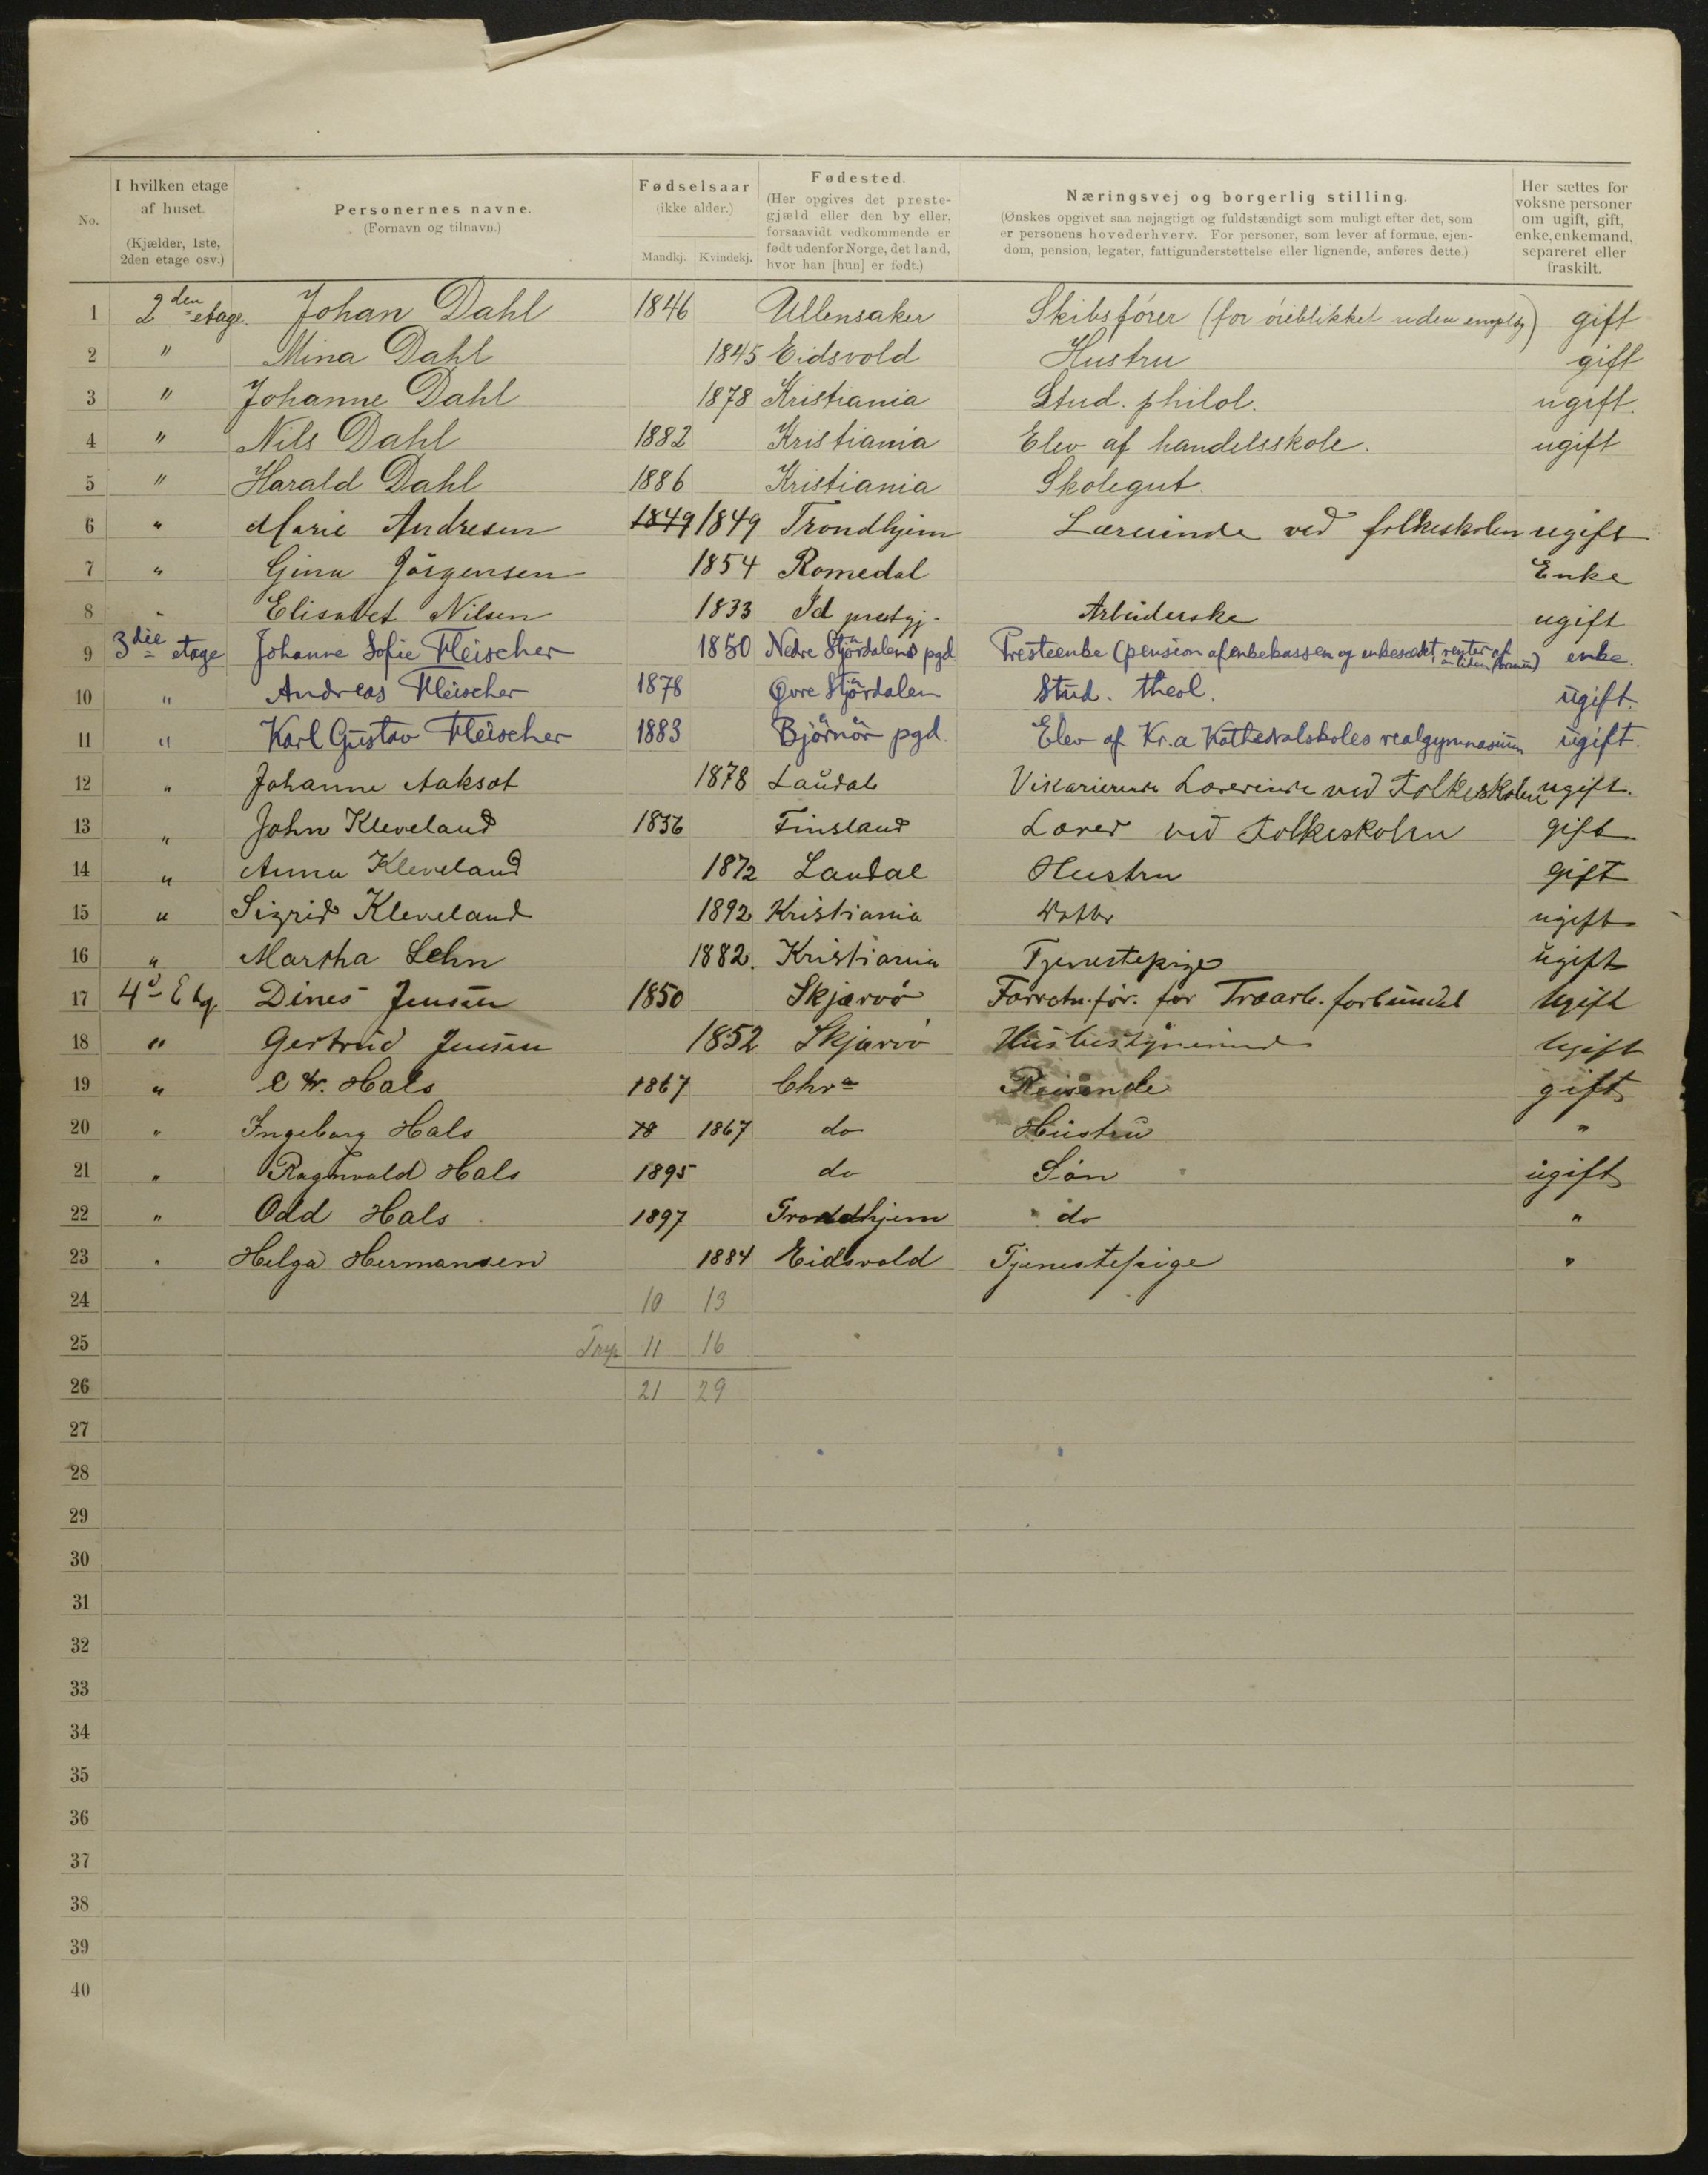 No. I hvilken etage af huset. (Kjælder, 1ste, 2den etage osv.) Personernes navne. (Fornavn og tilnavn.) Fødselsaar (ikke alder.) Mandkj. Kvindekj. Fødested. (Her opgives det prestegjæld eller den by eller, forsaavidt vedkommende er født udenfor Norge, det land, hvor han [hun] er født.) Næringsvej og borgerlig stilling. (Ønskes opgivet saa nøjagtigt og fuldstændigt som muligt efter det, som er personens hovederhverv. For personer, som lever af formue, ejendom, pension, legater, fattigunderstøttelse eller lignende, anføres dette.) Her sættes for voksne personer om ugift, gift, enke, enkemand, separeret eller fraskilt.
1 2den etage. Johan Dahl 1846 Ullensaker Skibsfører (for øieblikket uden) gift
2 " Mina Dahl 1845 Eidsvold Hustru gift
3 " Johanne Dahl 1878 Kristiania Stud. philol. ugift.
4 " Nils Dahl 1882 Kristiania Elev af handelsskole. ugift
5 " Harald Dahl 1886 Kristiania Skolegut.
6 " Marie Andresen 1849 1849 Trondhjem Lærerinde ved folkeskolen ugift
7 " Gina Jörgensen 1854 Romedal Enke
8 " Elisabet Nilsen 1833 Id prestgj. Arbeiderske ugift
9 3die etage Johanne Sofie Fleischer 1850 Nedre Stjördalens pgd Presteenke (pension af enkekassen og enkesædet, renter af en liden formue) enke.
10 " Andreas Fleischer 1878 Øvre Stjördalen Stud. theol. ugift.
11 " Karl Gustav Fleischer 1883 Björnör pgd. Elev af Kr.a Kathedralskoles realgymnasium ugift.
12 " Johanne Aaksot 1878 Laudal Vikarierende Lærerinde ved Folkeskolen ugift.
13 " John Kleveland 1856 Finsland Lærer ved Folkeskolen gift
14 " Anna Kleveland 1872 Laudal Hustru gift
15 " Sigrid Kleveland 1892 Kristiania Datter ugift
16 " Martha Lehn 1882. Kristiania Tjenestepige ugift
17 4d Etg. Dines Jensen 1850 Skjærvö Forretn.för. for Træarb. forbundet Ugift
18 " Gertrud Jensen 1852 Skjærvö Husbestyrerinde Ugift
19 " C Hals 1867 Chra Reisende gift
20 " Ingeborg Hals 18 1867 do Hustru "
21 " Ragnvald Hals 1895 do Sön ugift
22 " Odd Hals 1897 Trondhjem do "
23 " Helga Hermansen 1884 Eidsvold Tjenestepige "
24 10 13
25 11 16
26 21 29
27
28
29
30
31
32
33
34
35
36
37
38
39
40